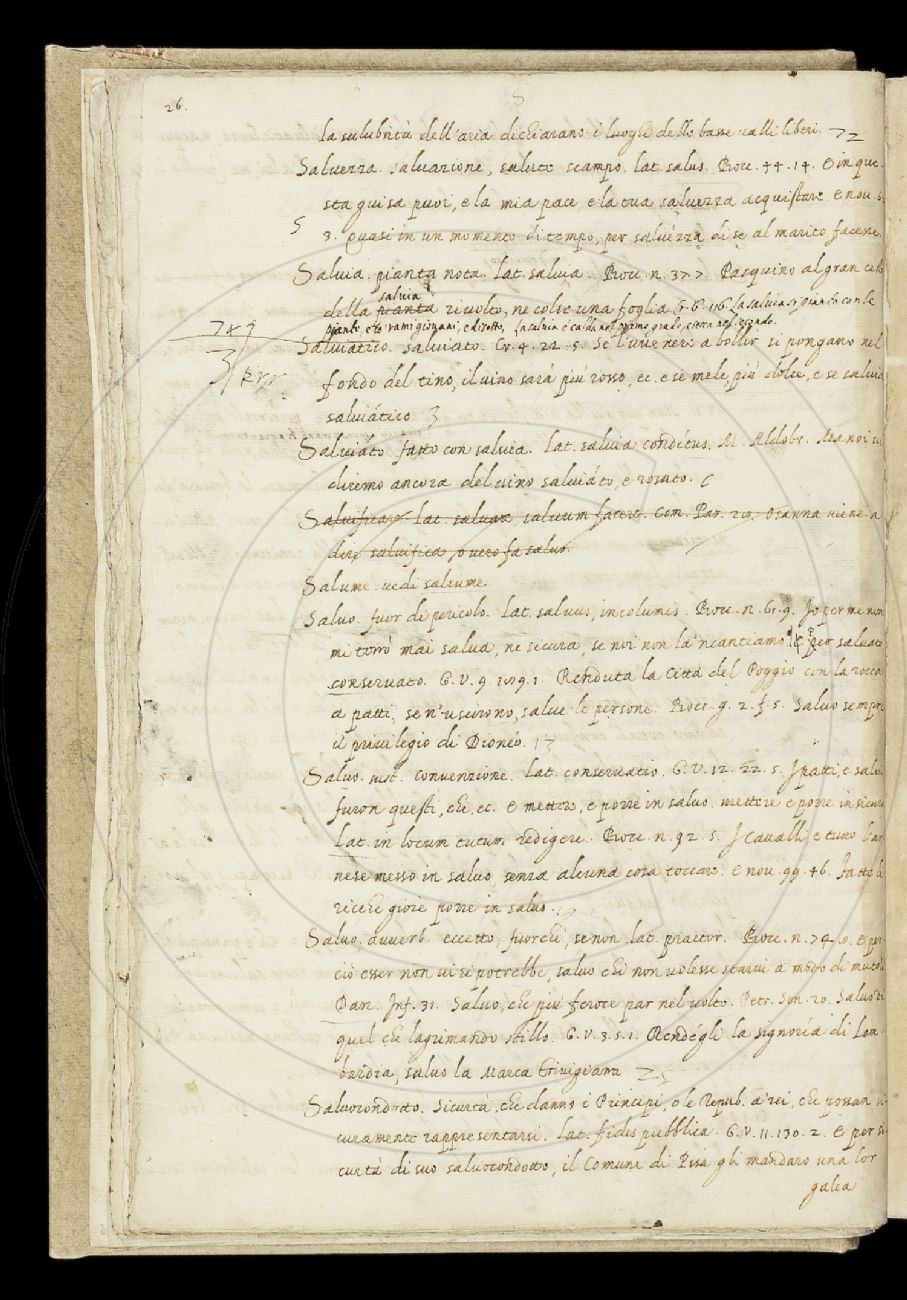 26.
la salubrità dell'aria dichiarano i luoghi delle basse valli liberi. 72
Salvezza. salvazione, salute scampo. lat. salus. Bocc. 44. 14. E in que-
sta guisa puoi, e la mia pace e la tua salvezza acquistare. e nov. 5.
5
3. quasi in un momento di tempo, per salvezza di se al marito facesse.
Salvia. pianta nota. lat. salvia. Bocc. n. 37. 7. Pasquino al gran cesto
della pianta salvia rivolto, ne colse una foglia. Cr. 6. 116. la salvia si pianta con le
piante e co rami giovani, e di sotto, la salvia è calda nel primo grado, e secca nel secondo.
Salviatico. salviato. Cr. 4. 22. 5. Se l'uve nere a bollir si pongano nel
fondo del tino, il vino sarà più rosso, ec. e se mele, più dolce, e se salvia
salviático 3
Salviáto. fatto con salvia. lat. salvia conditus. M. Aldobr. Ma noi vi
diremo ancora del vino salviáto, e rosato. 6
Salvificare. lat. salvare, salvum facere. Com. Par. 20. Osanna viene a
dire salvifica, o vero fa salvo.
Salume. vedi salsume.
Salvo. fuor di pericolo. lat. salvus, incolumis. Bocc. n. 61. 9. Io per me non
mi terrò mai salva, ne sicura, se noi non la 'ncantiamo. per salvato
conservato. G. V. 9. 109. 1. Renduta la Città del Poggio con la rocca
a patti, se n'uscirono, salve le persone. Bocc. g. 2. f. 5. Salvo sempre
il privilegio di Dioneo. 13
Salvo. sust. convenzione. lat. conservatio. G. V. 12. 22. 5. I patti, e salvi
furon questi, che, ec. E mettere, e porre in salvo. mettere e porre in sicuro
lat. in locum tutum redigere. Bocc. n. 92. 5. I cavalli e tutto l'ar-
nese messo in salvo, senza alcuna cosa toccare. e nov. 99. 46. Fatte le
ricche gioie porre in salvo. 19
Salvo. avverb. eccetto, fuorchè, se non. lat. praeter. Bocc. n. 79. E per
ciò esser non vi si potrebbe, salvo chi non volesse starvi a modo di mutolo
Dan. Inf. 31. Salvo, che più feroce par nel volto. Petr. Son. 20. Salvo di
quel che lagrimando stillo. G. V. 3. 5. 1. Rendégli la signoría di Lom-
bardia, salvo la Marca Trivigiana 25
Salvocondotto. Sicurtà, che danno i Principi, o le Repub. a' rei, che possan si-
curamente rappresentarsi. lat. fides pubblica. G. V. 11. 130. 2. E per si-
curtà di suo salvocondotto, il Comune di Pisa gli mandaro una lor
galea